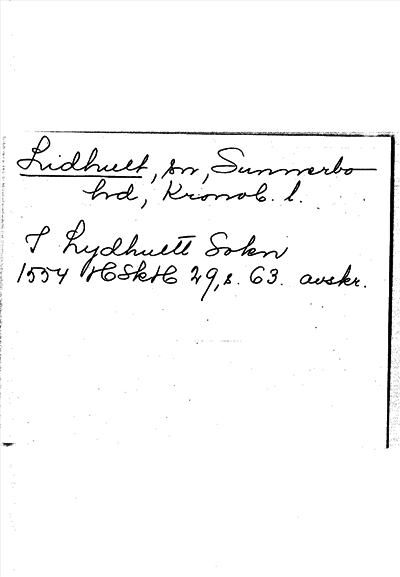 Lidhult, sn, Sunnerbo
hd, Kronob. l.
I Lydhultt Sokn
1554 HSkH 29, s. 63. avskr.